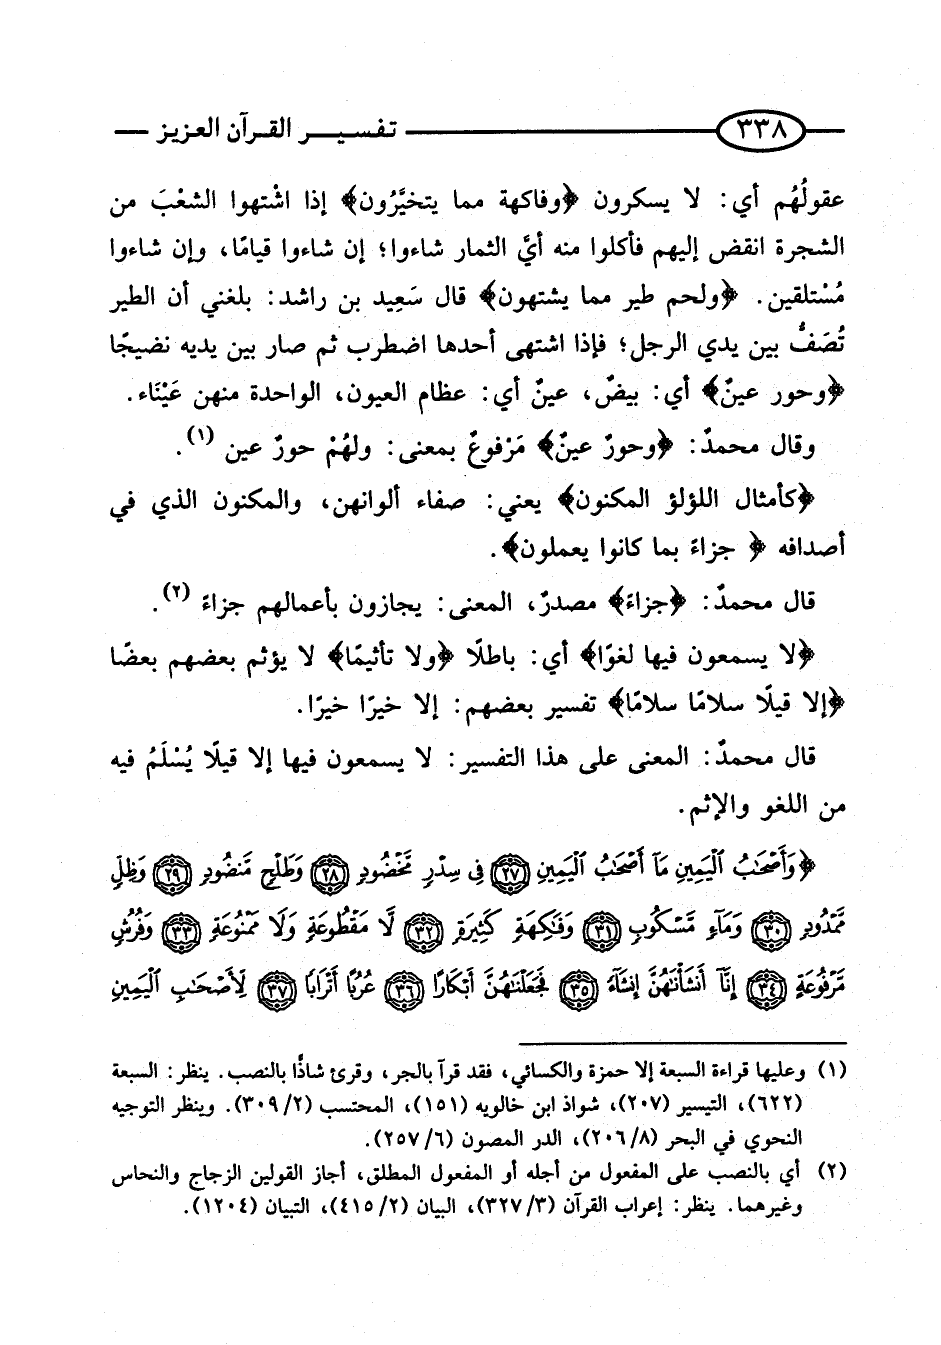 ٣٣٨ تفسير القرآن العزيز
عقولُهُم أي: لا يسكرون ﴿وفاكهة مما يتخيَّرُون﴾ إذا اشْتهوا الشعْبَ من
الشجرة انقض إليهم فأكلوا منه أيَّ الثمار شاءوا؛ إن شاءوا قيامًا، وإن شاءوا
مُسْتلقين. ﴿ولحم طير مما يشتهون﴾ قال سَعِيد بن راشد: بلغني أن الطير
تُصَفُّ بين يدي الرجل؛ فإذا اشتهى أحدها اضطرب ثم صار بين يديه نضيجًا
﴿وحور عينٌ﴾ أي: بيضٌ، عينٌ أي: عظام العيون، الواحدة منهن عَيْنَاء.
وقال محمدٌ: ﴿وحورٌ عينٌ﴾ مَرْفوعٌ بمعنى: ولهُمْ حورٌ عين (١).
﴿كأمثال اللؤلؤ المكنون﴾ يعني: صفاء ألوانهن، والمكنون الذي في
أصدافه ﴿ جزاءً بما كانوا يعملون﴾.
قال محمدٌ: ﴿جزاءً﴾ مصدرٌ، المعنى: يجازون بأعمالهم جزاءً (٢).
﴿لا يسمعون فيها لغوًا﴾ أي: باطلًا ﴿ولا تأثيمًا﴾ لا يؤثم بعضهم بعضًا
﴿إلا قيلًا سلامًا سلامًا﴾ تفسير بعضهم: إلا خيرًا خيرًا.
قال محمدٌ: المعنى على هذا التفسير: لا يسمعون فيها إلا قيلًا يُسْلَمُ فيه
من اللغو والإثم.
﴿وَأَصْحَٰبُ ٱلْيَمِينِ مَآ أَصْحَٰبُ ٱلْيَمِينِ ٢٧ فِى سِدْرٍ مَّخْضُودٍ ٢٨ وَطَلْحٍ مَّنضُودٍ ٢٩ وَظِلٍّ
مَّمْدُودٍ ٣٠ وَمَآءٍ مَّسْكُوبٍ ٣١ وَفَٰكِهَةٍ كَثِيرَةٍ ٣٢ لَّا مَقْطُوعَةٍ وَلَا مَمْنُوعَةٍ ٣٣ وَفُرُشٍ
مَّرْفُوعَةٍ ٣٤ إِنَّآ أَنشَأْنَٰهُنَّ إِنشَآءً ٣٥ فَجَعَلْنَٰهُنَّ أَبْكَارًا ٣٦ عُرُبًا أَتْرَابًا ٣٧ لِّأَصْحَٰبِ ٱلْيَمِينِ
(١) وعليها قراءة السبعة إلا حمزة والكسائي، فقد قرآ بالجر، وقرئ شاذًّا بالنصب. ينظر: السبعة
(٦٢٢)، التيسير (٢٠٧)، شواذ ابن خالويه (١٥١)، المحتسب (٣٠٩/٢). وينظر التوجيه
النحوي في البحر (٢٠٦/٨)، الدر المصون (٢٥٧/٦).
(٢) أي بالنصب على المفعول من أجله أو المفعول المطلق، أجاز القولين الزجاج والنحاس
وغيرهما. ينظر: إعراب القرآن (٣٢٧/٣)، البيان (٤١٥/٢)، التبيان (١٢٠٤).